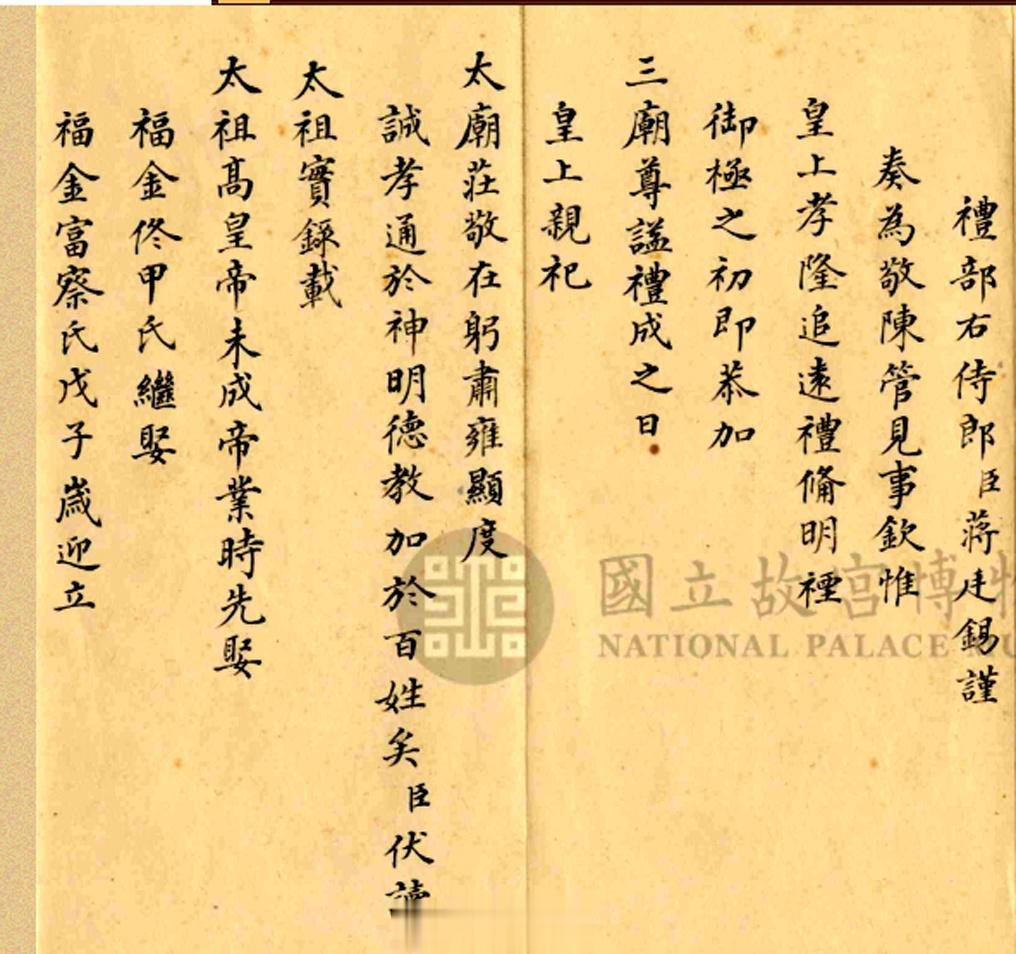 禮部右侍郎臣蔣廷錫謹
奏為敬陳管見事欽惟
皇上孝隆追遠禮脩明禋
御極之初即恭加
三廟尊謚禮成之日
皇上親祀
太廟莊敬在躬肅雍顯度
誠孝通於神明德教加於百姓矣臣伏讀
太祖實錄載
太祖高皇帝未成帝業時先娶
福金佟甲氏繼娶
福金富察氏戊子歲迎立
國立故宮博物
NATIONAL PALACE